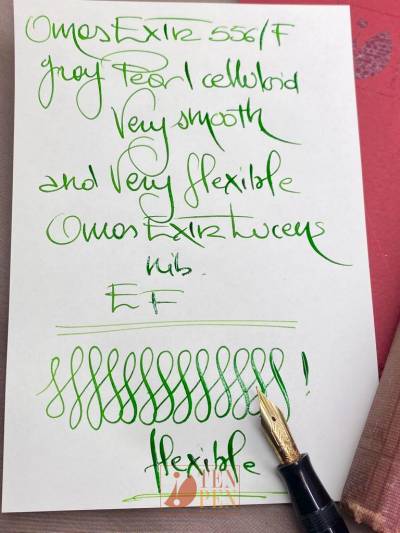 Omas Extra 556/F
gray Pearl celluloid
Very smooth
and Very flexible
Omas Extra Lucens
nib.
EF
flexible
TEN
PEN